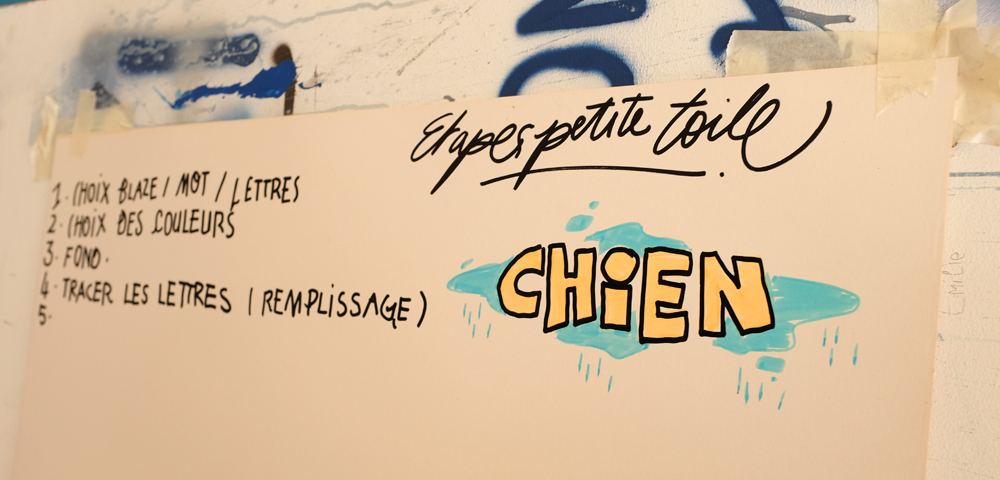 Etapes petite toile.
1. CHOIX BLAZE / MOT / LETTRES
2. CHOIX DES COULEURS
3. FOND.
4. TRACER LES LETTRES (REMPLISSAGE)
5.
CHiEN
EMiLiE